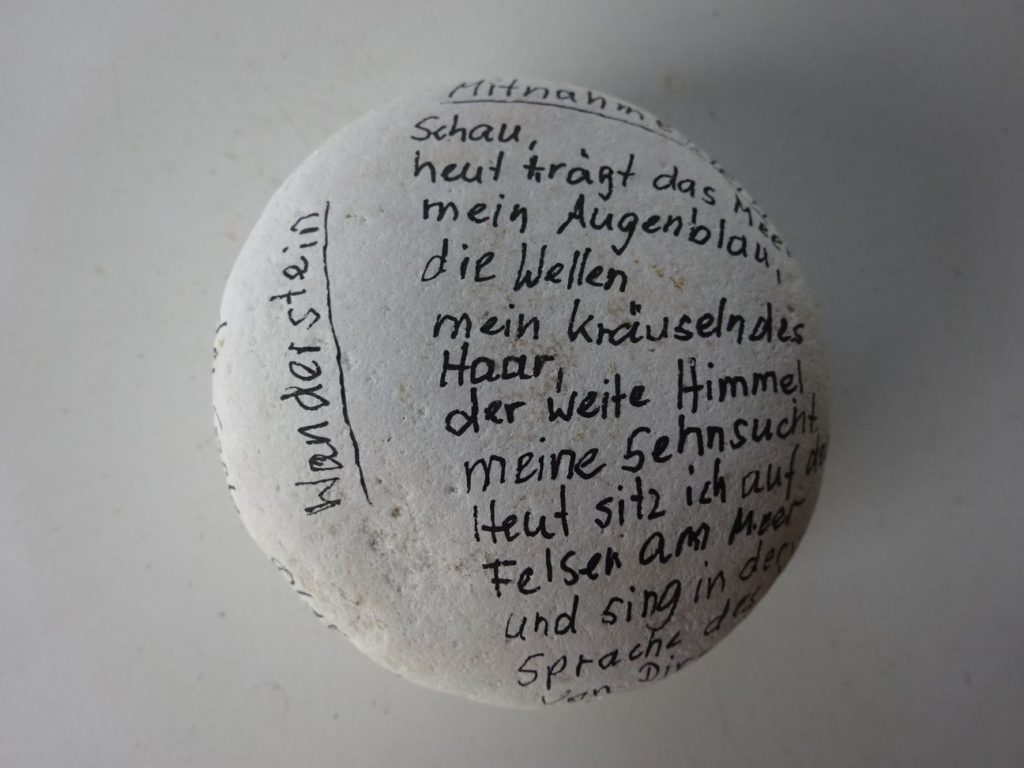 Mitnahme
Schau,
heut trägt das Meer
mein Augenblau,
die Wellen
mein kräuselndes
Haar,
der weite Himmel
meine Sehnsucht
Heut sitz ich auf
Felsen am Meer
und sing in der
Sprache des
von
Wanderstein